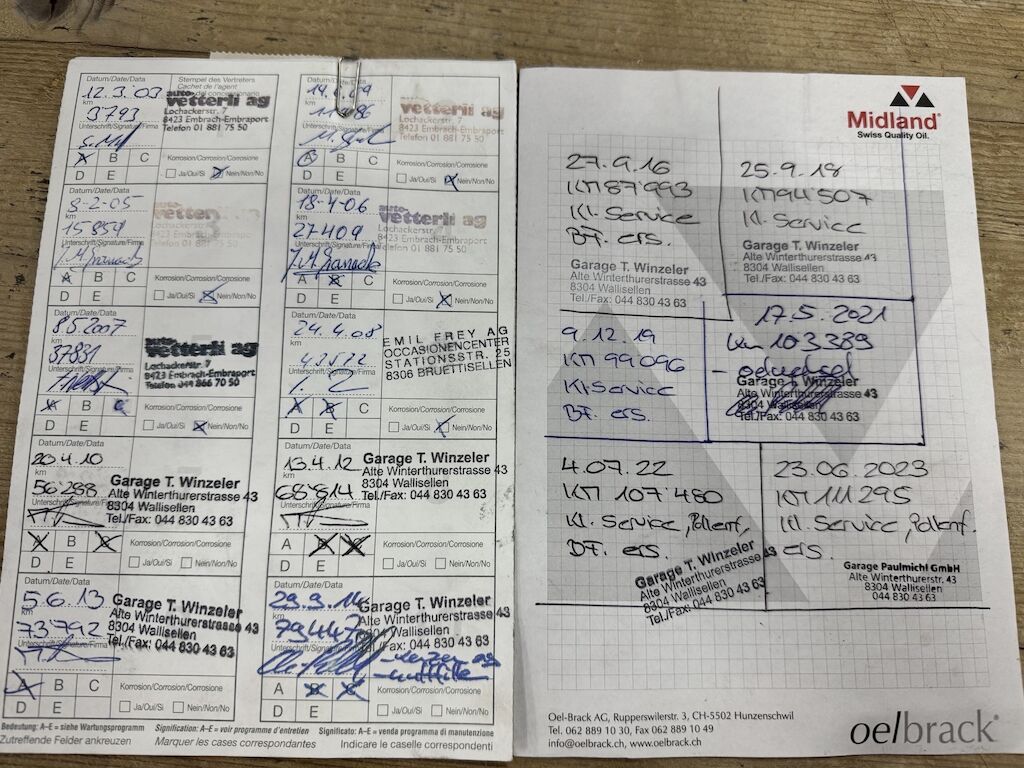 Datum/Date/Data
12.3.03
km
3793
Unterschrift/Signature/Firma
Stempel des Vertreters
Cachet de l'agent
auto
vetterli ag
Lochackerstr. 7
8423 Embrach-Embraport
Telefon 01 881 75 50
A B C
D E
Korrosion/Corrosion/Corrosione
Ja/Oui/Si Nein/Non/No
Datum/Date/Data
km
Unterschrift/Signature/Firma
vetterli ag
Lochackerstr. 7
8423 Embrach-Embraport
Telefon 01 881 75 50
A B C
D E
Korrosion/Corrosion/Corrosione
Ja/Oui/Si Nein/Non/No
Datum/Date/Data
8-2-05
km
15854
Unterschrift/Signature/Firma
vetterli
8423 Embrach-Embraport
A B C
D E
Korrosion/Corrosion/Corrosione
Ja/Oui/Si Nein/Non/No
Datum/Date/Data
18-4-06
km
27409
Unterschrift/Signature/Firma
auto
vetterli ag
Lochackerstr. 7
8423 Embrach-Embraport
Telefon 01 881 75 50
A B C
D E
Korrosion/Corrosion/Corrosione
Ja/Oui/Si Nein/Non/No
Datum/Date/Data
8.5.2007
km
37831
Unterschrift/Signature/Firma
auto
vetterli ag
Lochackerstr. 7
8423 Embrach-Embraport
Telefon 044 866 70 50
A B C
D E
Korrosion/Corrosion/Corrosione
Ja/Oui/Si Nein/Non/No
Datum/Date/Data
24.4.08
km
42522
Unterschrift/Signature/Firma
EMIL FREY AG
OCCASIONENCENTER
STATIONSSTR. 25
8306 BRUETTISELLEN
A B C
D E
Korrosion/Corrosion/Corrosione
Ja/Oui/Si Nein/Non/No
Datum/Date/Data
20.4.10
km
56'288
Unterschrift/Signature/Firma
Garage T. Winzeler
Alte Winterthurerstrasse 43
8304 Wallisellen
Tel./Fax: 044 830 43 63
A B C
D E
Korrosion/Corrosion/Corrosione
Ja/Oui/Si Nein/Non/No
Datum/Date/Data
13.4.12
km
68'814
Unterschrift/Signature/Firma
Garage T. Winzeler
Alte Winterthurerstrasse 43
8304 Wallisellen
Tel./Fax: 044 830 43 63
A B C
D E
Korrosion/Corrosion/Corrosione
Ja/Oui/Si Nein/Non/No
Datum/Date/Data
5.6.13
km
73'792
Unterschrift/Signature/Firma
Garage T. Winzeler
Alte Winterthurerstrasse 43
8304 Wallisellen
Tel./Fax: 044 830 43 63
A B C
D E
Korrosion/Corrosion/Corrosione
Ja/Oui/Si Nein/Non/No
Datum/Date/Data
29.9.14
km
79'447
Unterschrift/Signature/Firma
Garage T. Winzeler
Alte Winterthurerstrasse 43
8304 Wallisellen
Tel./Fax: 044 830 43 63
A B C
D E
Korrosion/Corrosion/Corrosione
Ja/Oui/Si Nein/Non/No
Bedeutung: A–E = siehe Wartungsprogramm Signification: A–E = voir programme d'entretien Significato: A–E = venda programma di manutenzione
Zutreffende Felder ankreuzen Marquer les cases correspondantes Indicare le caselle correspondenti
Midland®
Swiss Quality Oil.
27.9.16
KM 87'993
Kl. Service
BF. ers.
Garage T. Winzeler
Alte Winterthurerstrasse 43
8304 Wallisellen
Tel./Fax: 044 830 43 63
25.9.18
KM 94'507
Kl. Service
Garage T. Winzeler
Alte Winterthurerstrasse 43
8304 Wallisellen
Tel./Fax: 044 830 43 63
9.12.19
KM 99'096
Kl Service
BF. ers.
17.5.2021
Km 103389
- oelwechsel
Garage T. Winzeler
Alte Winterthurerstrasse 43
8304 Wallisellen
Tel./Fax: 044 830 43 63
4.07.22
KM 107'480
Kl. Service, Pollenf.
BF. ers.
Garage T. Winzeler
Alte Winterthurerstrasse 43
8304 Wallisellen
Tel./Fax: 044 830 43 63
23.06.2023
KM 111295
Kl. Service, Pollenf.
ers.
Garage Paulmichl GmbH
Alte Winterthurerstr. 43
8304 Wallisellen
044 830 43 63
Oel-Brack AG, Rupperswilerstr. 3, CH-5502 Hunzenschwil
Tel. 062 889 10 30, Fax 062 889 10 49
info@oelbrack.ch, www.oelbrack.ch
oelbrack®